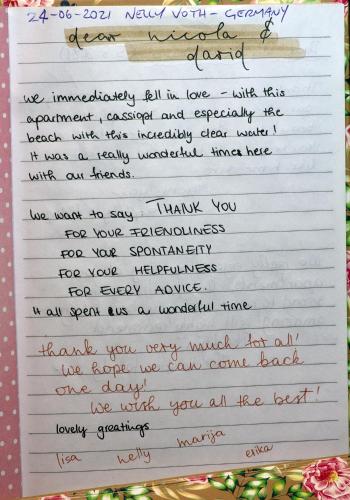 24-06-2021 NELLY VOTH - GERMANY
dear nicola &
david
we immediately fell in love - with this
apartment, cassiopi and especially the
beach with this incredibly clear water!
It was a really wonderful time here
with our friends.
We want to say THANK YOU
FOR YOUR FRIENDLINESS
FOR YOUR SPONTANEITY
FOR YOUR HELPFULNESS
FOR EVERY ADVICE.
It all spent us a wonderful time
thank you very much for all!
We hope we can come back
one day!
We wish you all the best!
lovely greatings
lisa nelly marija erika